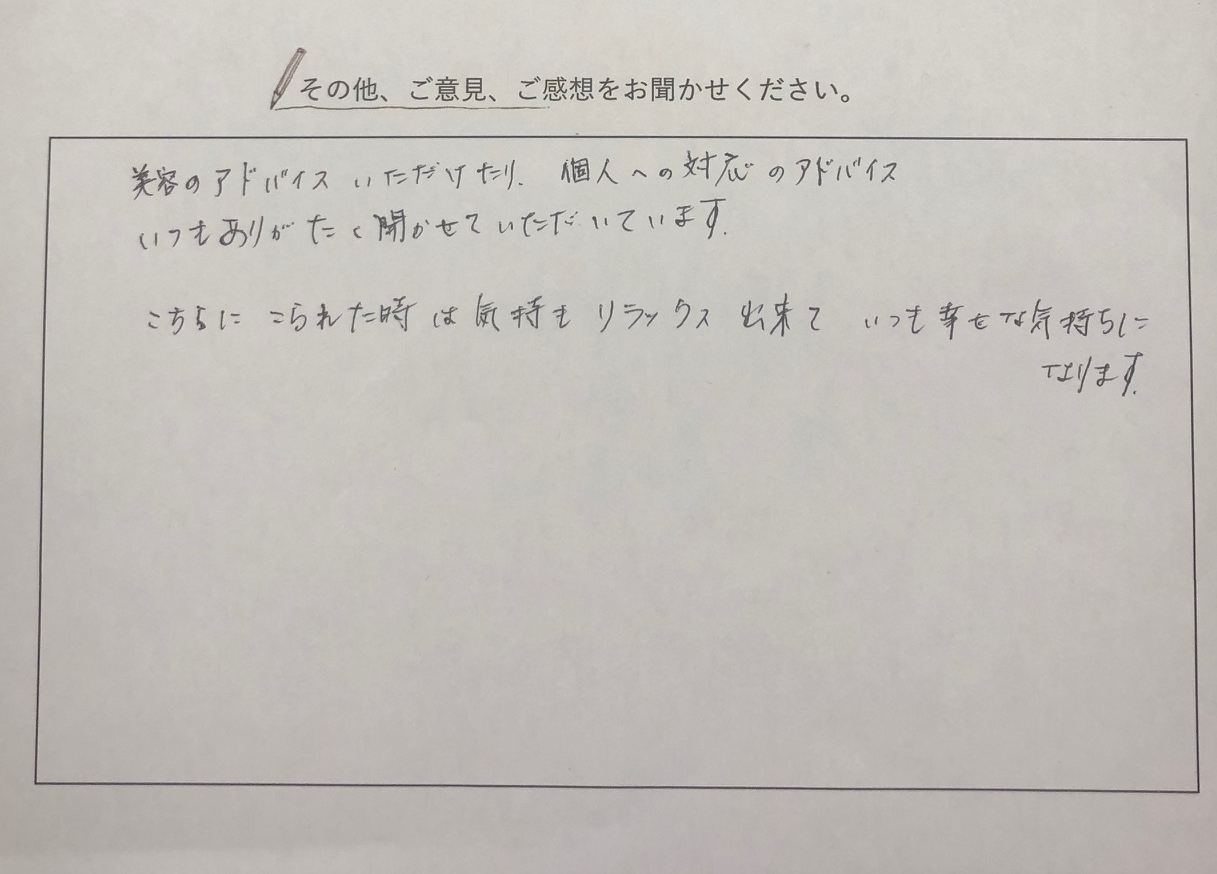 その他、ご意見、ご感想をお聞かせください。
美容のアドバイス いただけたり、個人への対応のアドバイス
いつもありがたく聞かせていただいています。
こちらに こられた時は気持もリラックス出来て いつも幸せな気持ちに
なります。